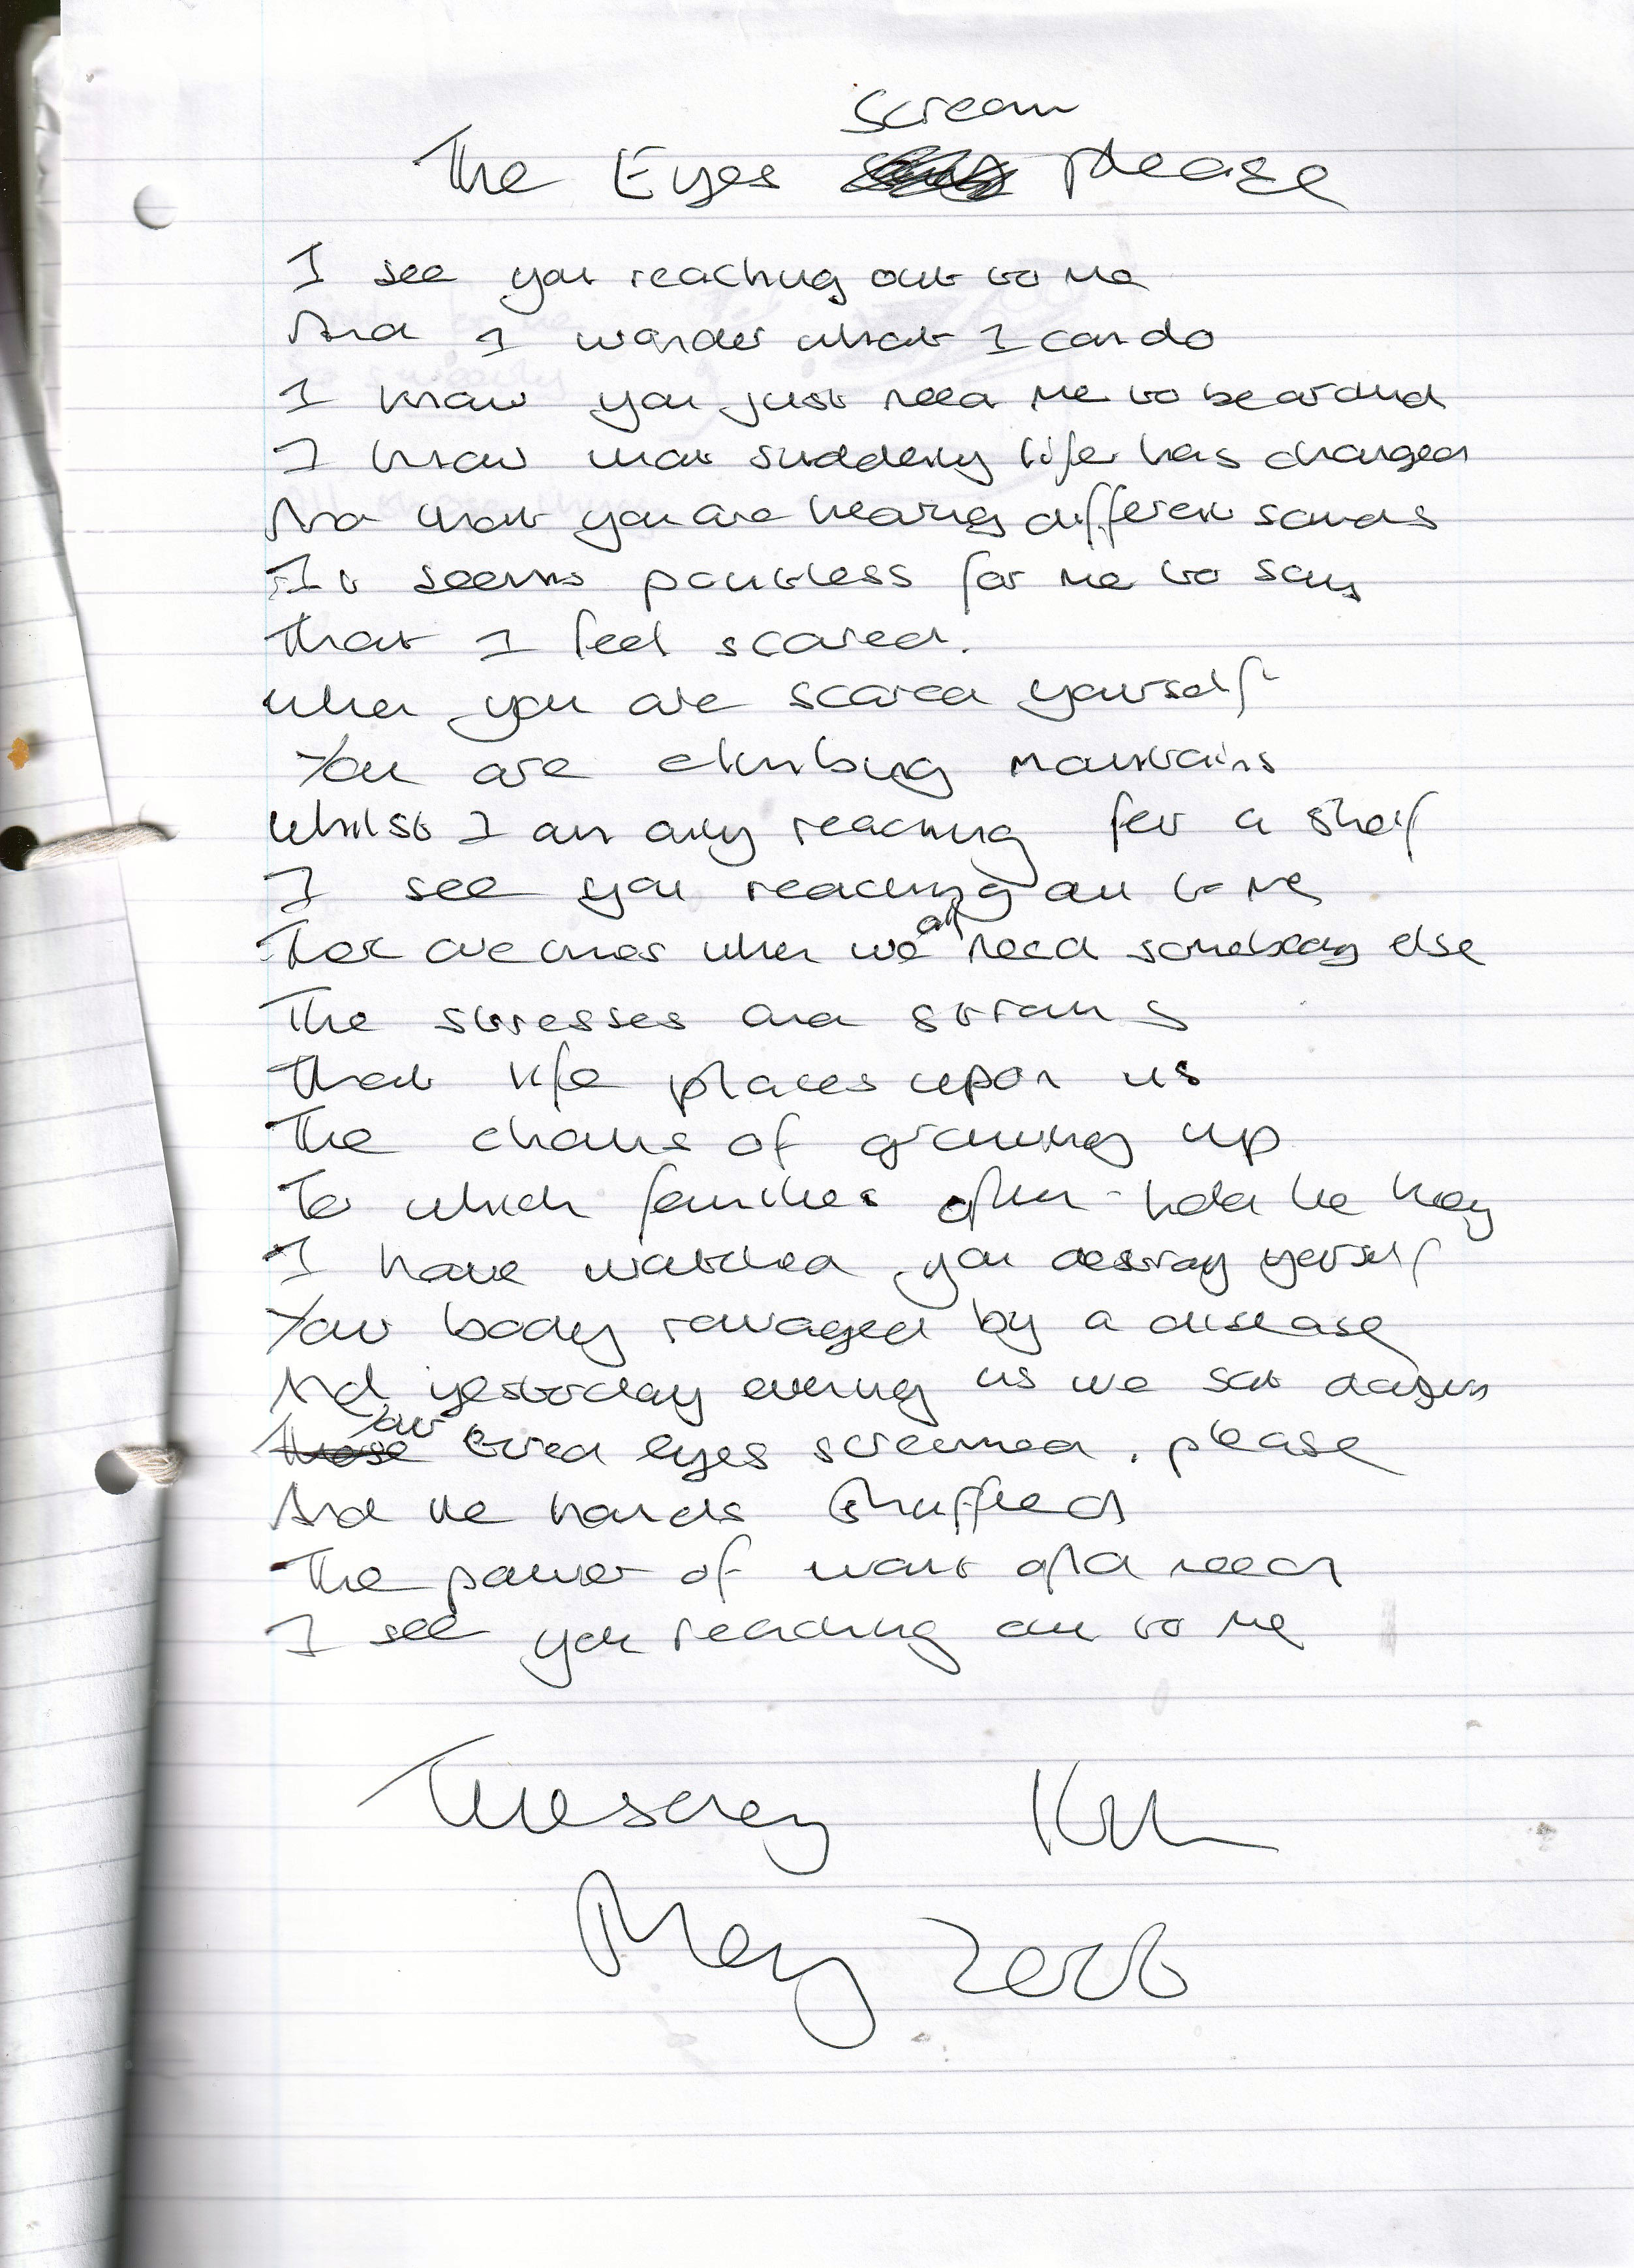 The Eyes scream please
I see you reaching out to me
And I wonder what I can do
I know you just need me to be around
I know that suddenly life has changed
And that you are hearing different sounds
It seems pointless for me to say
That I feel scared.
when you are scared yourself
You are climbing mountains
whilst I am only reaching for a shelf
I see you reaching out to me
There are times when we all need somebody else
The stresses and strains
that life places upon us
The chains of growing up
To which families often hold the key
I have watched you destroy yourself
Your body ravaged by a disease
And yesterday evening as we sat
Your tired eyes screamed, please
And the hands
The power of want and need
I see you reaching out to me
Tuesday
May 2006